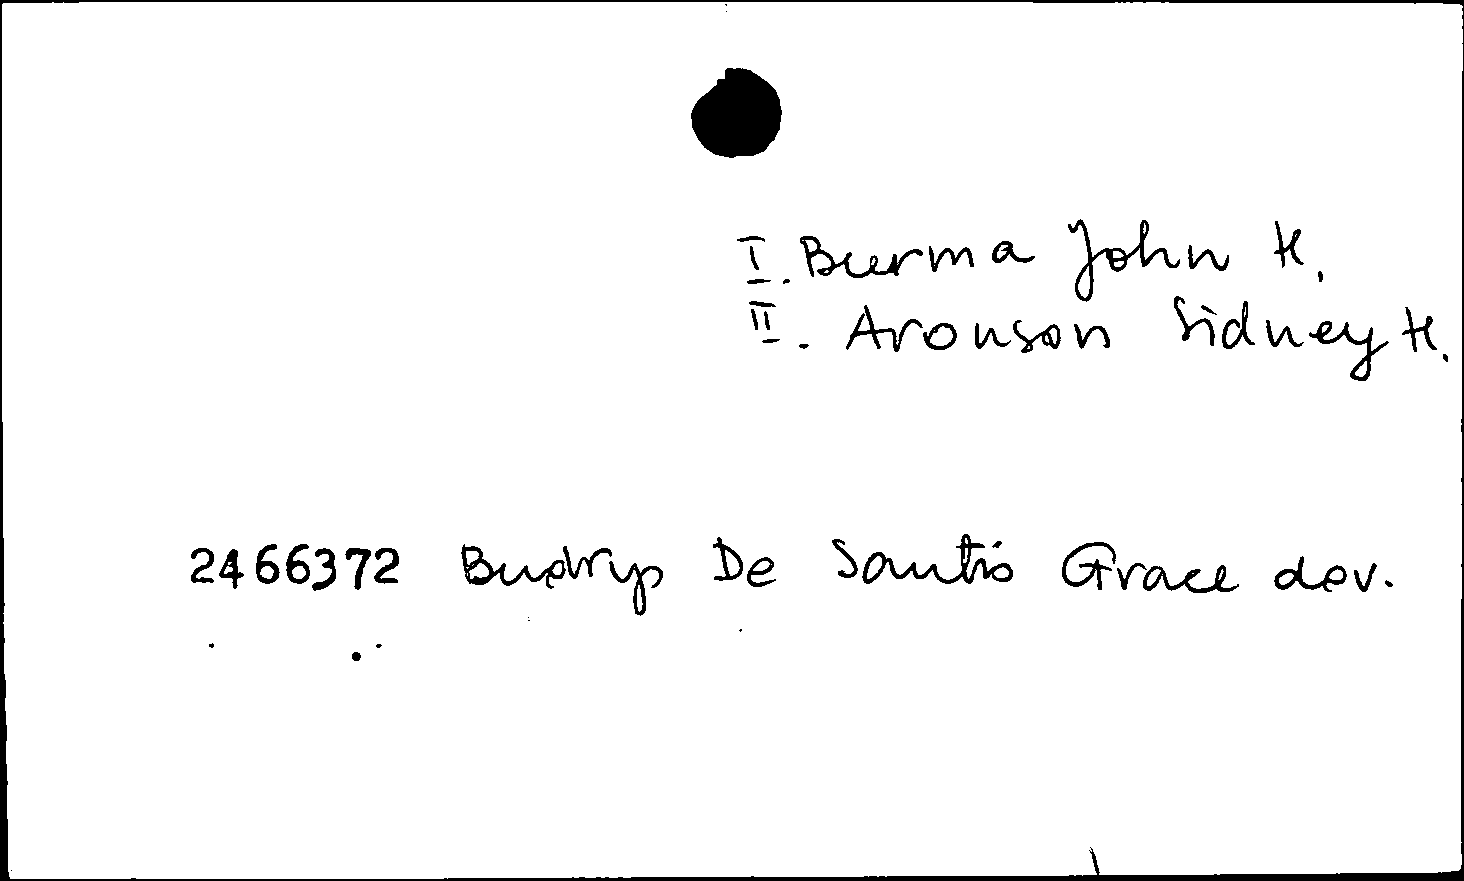 I. Burma John H.
II. Aronson Sidney H.
2466372 Budrys De Santis Grace dev.